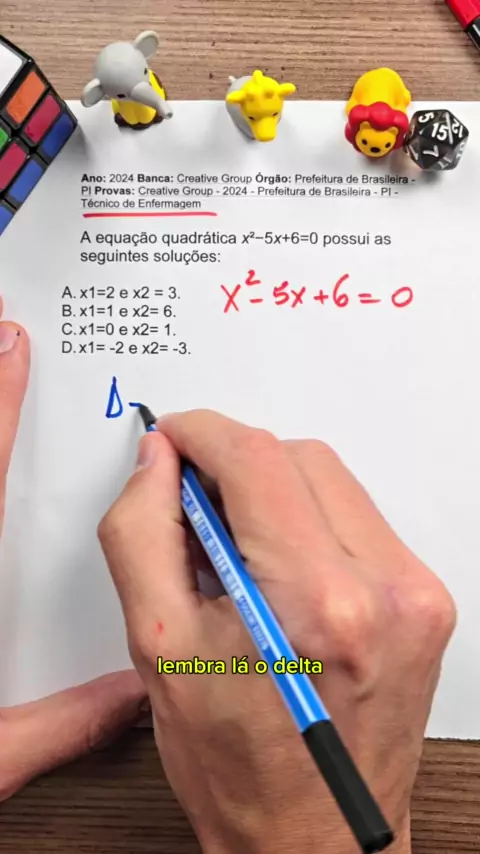 Ano: 2024 Banca: Creative Group Órgão: Prefeitura de Brasileira -
PI Provas: Creative Group - 2024 - Prefeitura de Brasileira - PI -
Técnico de Enfermagem
A equação quadrática x²−5x+6=0 possui as
seguintes soluções:
A. x1=2 e x2 = 3.
B. x1=1 e x2= 6.
C. x1=0 e x2= 1.
D. x1= -2 e x2= -3.
x²-5x+6=0
Δ-
lembra lá o delta
15